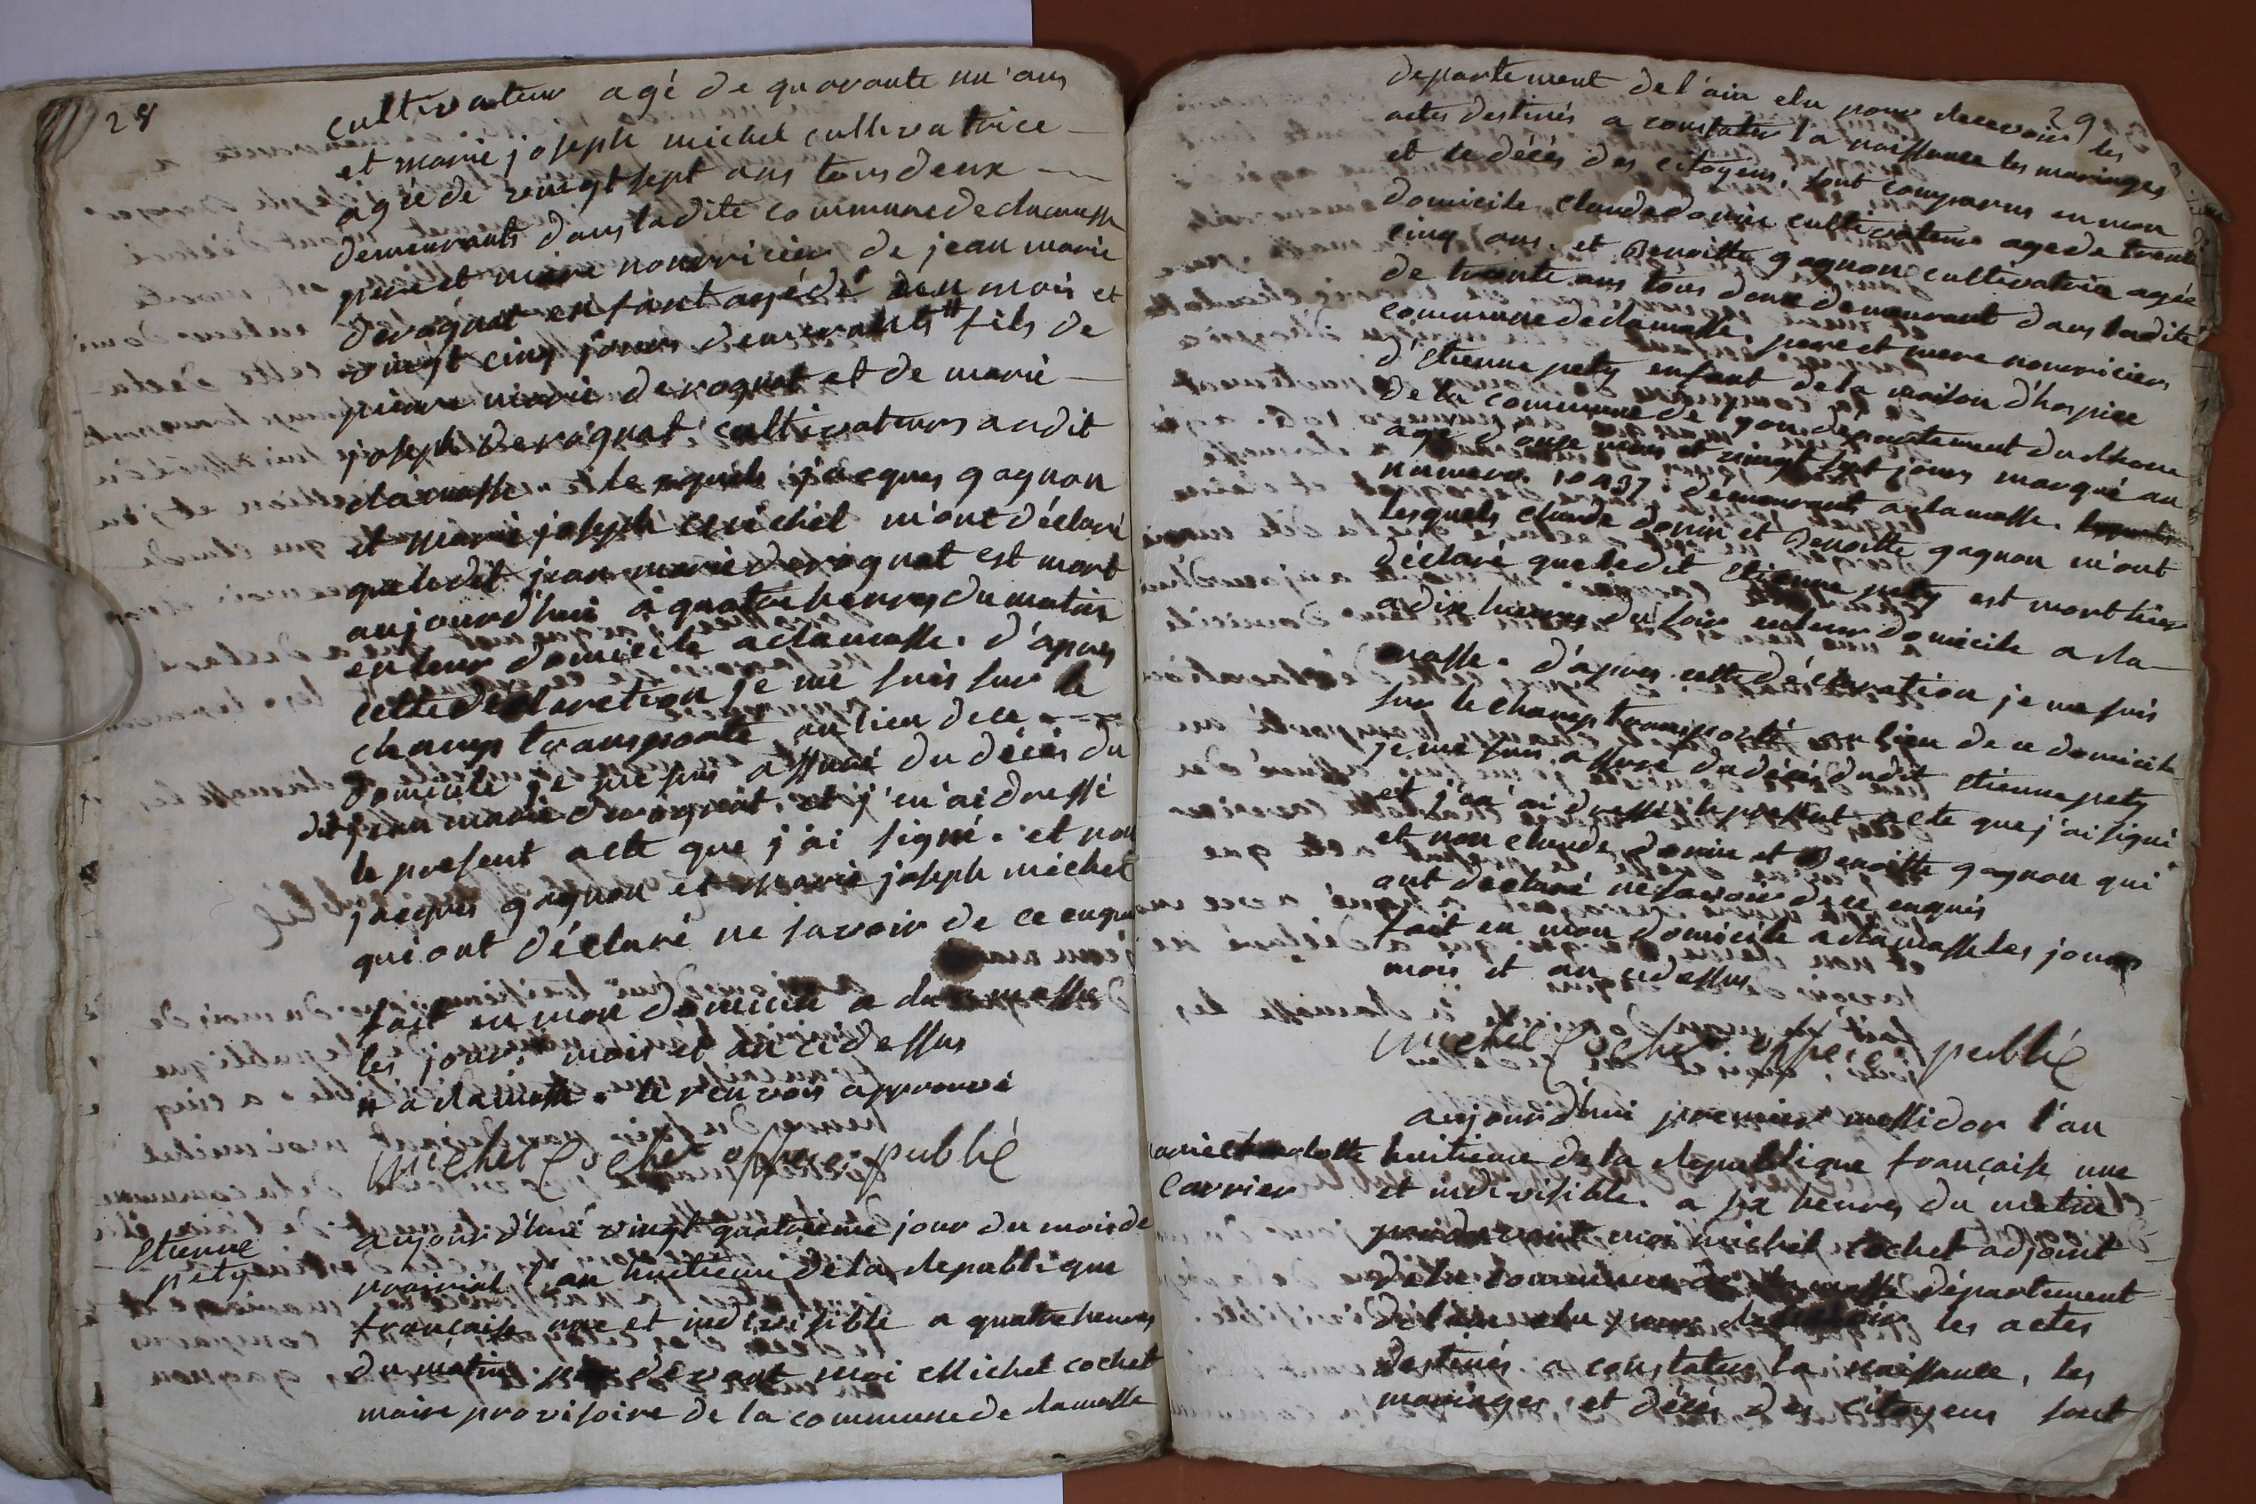 28
cultivateur agé de quarante un ans
et marie joseph michel cultivatrice
agée de vingt sept ans tous deux
demeurants dans ladite commune de
pere et mère nourricier de jean marie
devaquat enfant agé de un mois et
vingt cinq jours demeurants # fils de
pierre marie devaquat et de marie
joseph devaquat cultivateurs audit
lesquels jacques gagnon
et marie joseph michel m'ont déclaré
que ledit jean marie devaquat est mort
aujourd'hui à quatre heures du matin
en leur domicile a clamasse. d'apres
cette declaretion je me suis sur le
champ transporté au lieu de ce
domicile je me suis assuré du décés du
dit jean marie devaquat, et j'en ai dressé
le present acte que j'ai signé. et non
jacques gagnon et marie joseph michel
qui ont déclaré ne savoir de ce enquis
fait en mon domicile a
les jour, mois et an cidessus
# a clamasse. le renvois approuvé
michel Cochet office publié
Etienne
pety
aujourd'hui vingt quatrieme jour du mois de
prairial l'an huitieme de la republique
française une et indivisible a quatre heures
du matin. devant moi Michel cochet
maire provisoire de la commune de clamasse
29
departement de l'ain elu pour recevoir les
actes destinés a constater la naissance les mariages
et le décés des citoyens, sont comparus en mon
domicile claude donin cultivateur age de trente
cinq ans. et Benoitte gagnon cultivatrice agée
de trente ans tous deux demeurant dans ladite
commune de clamasse. pere et mere nourriciers
d'Etienne pety enfant de la maison d'hospice
de la commune de lyon département du Rhone
agé d'onze mois et vingt sept jours marqué au
numero demeurant a clamasse.
lesquels claude donin et Benoitte gagnon m'ont
déclaré que ledit Etienne pety est mort hier
a dix heures du soir en leur domicile a cla
masse. d'apres cette déclaration je me suis
sur le champ transporté au lieu de ce domicile
je me suis assuré du décés dudit Etienne pety
et j'en ai dressé le present acte que j'ai signé
et non claude donin et Benoitte gagnon qui
ont declaré ne savoir de ce enquis
fait en mon domicile a clamasse les jour
mois et an cidessus
michel Cochet office publié
Carrier
aujourd'hui premier messidor l'an
huitieme de la republique française une
et indivisible. a six heures du matin
pardevant moi michel cochet adjoint
de la commune de clamasse département
de l'ain elu pour recevoir les actes
destinés a constater la naissance, les
mariages et décés des citoyens sont